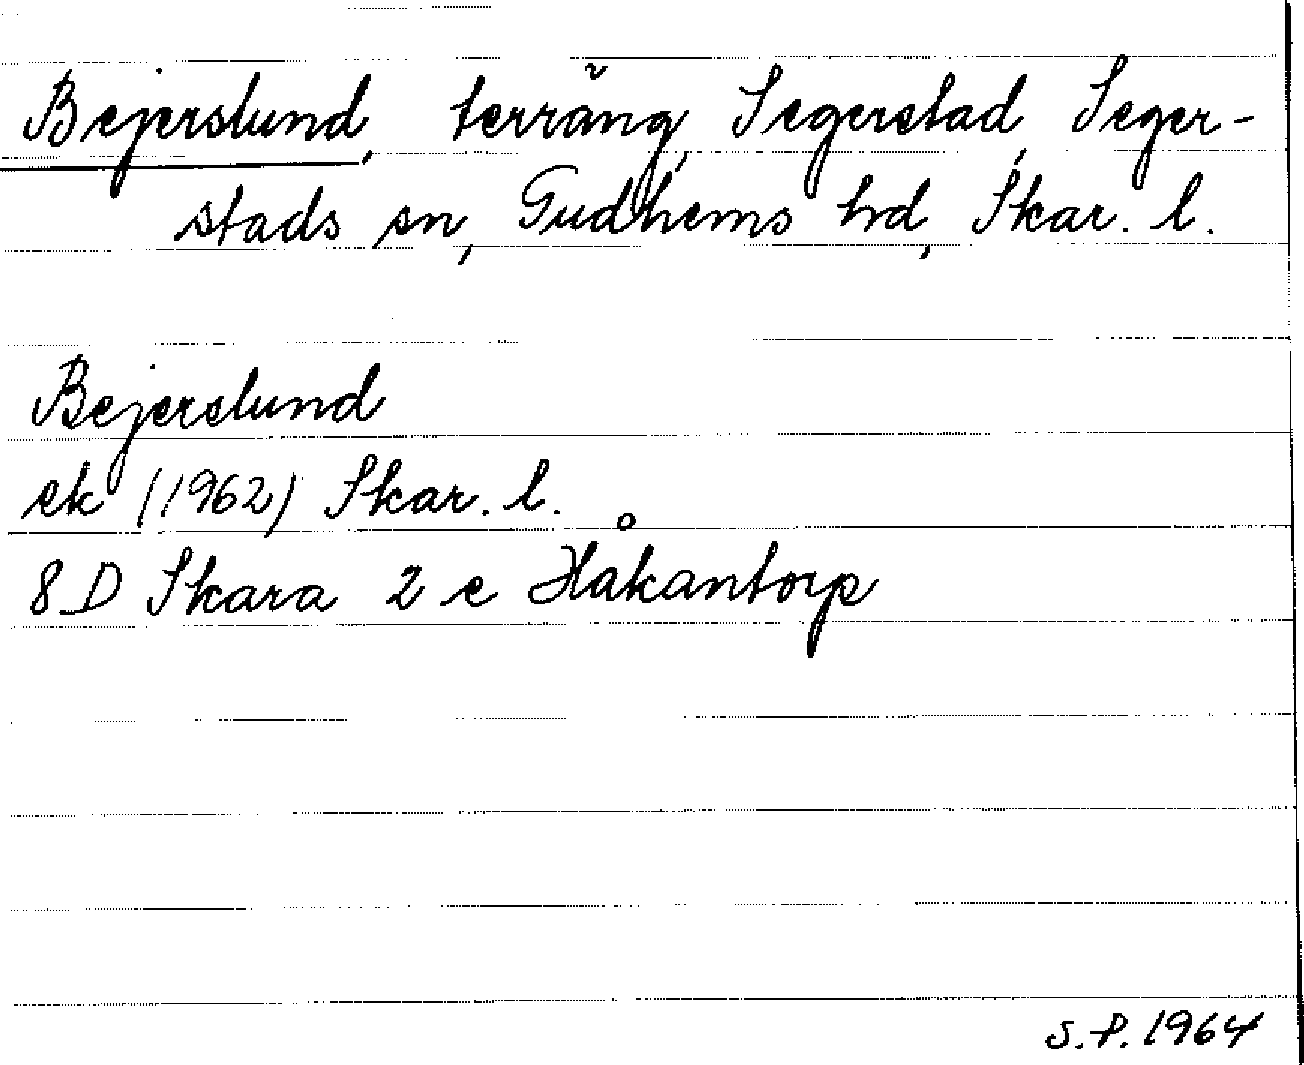 Bejerslund, terräng, Segerstad, Seger-
stads sn, Gudhems hd, Skar. l.
Bejerslund
ek (1962) Skar. l.
8 D Skara 2 e Håkantorp
S.P. 1964